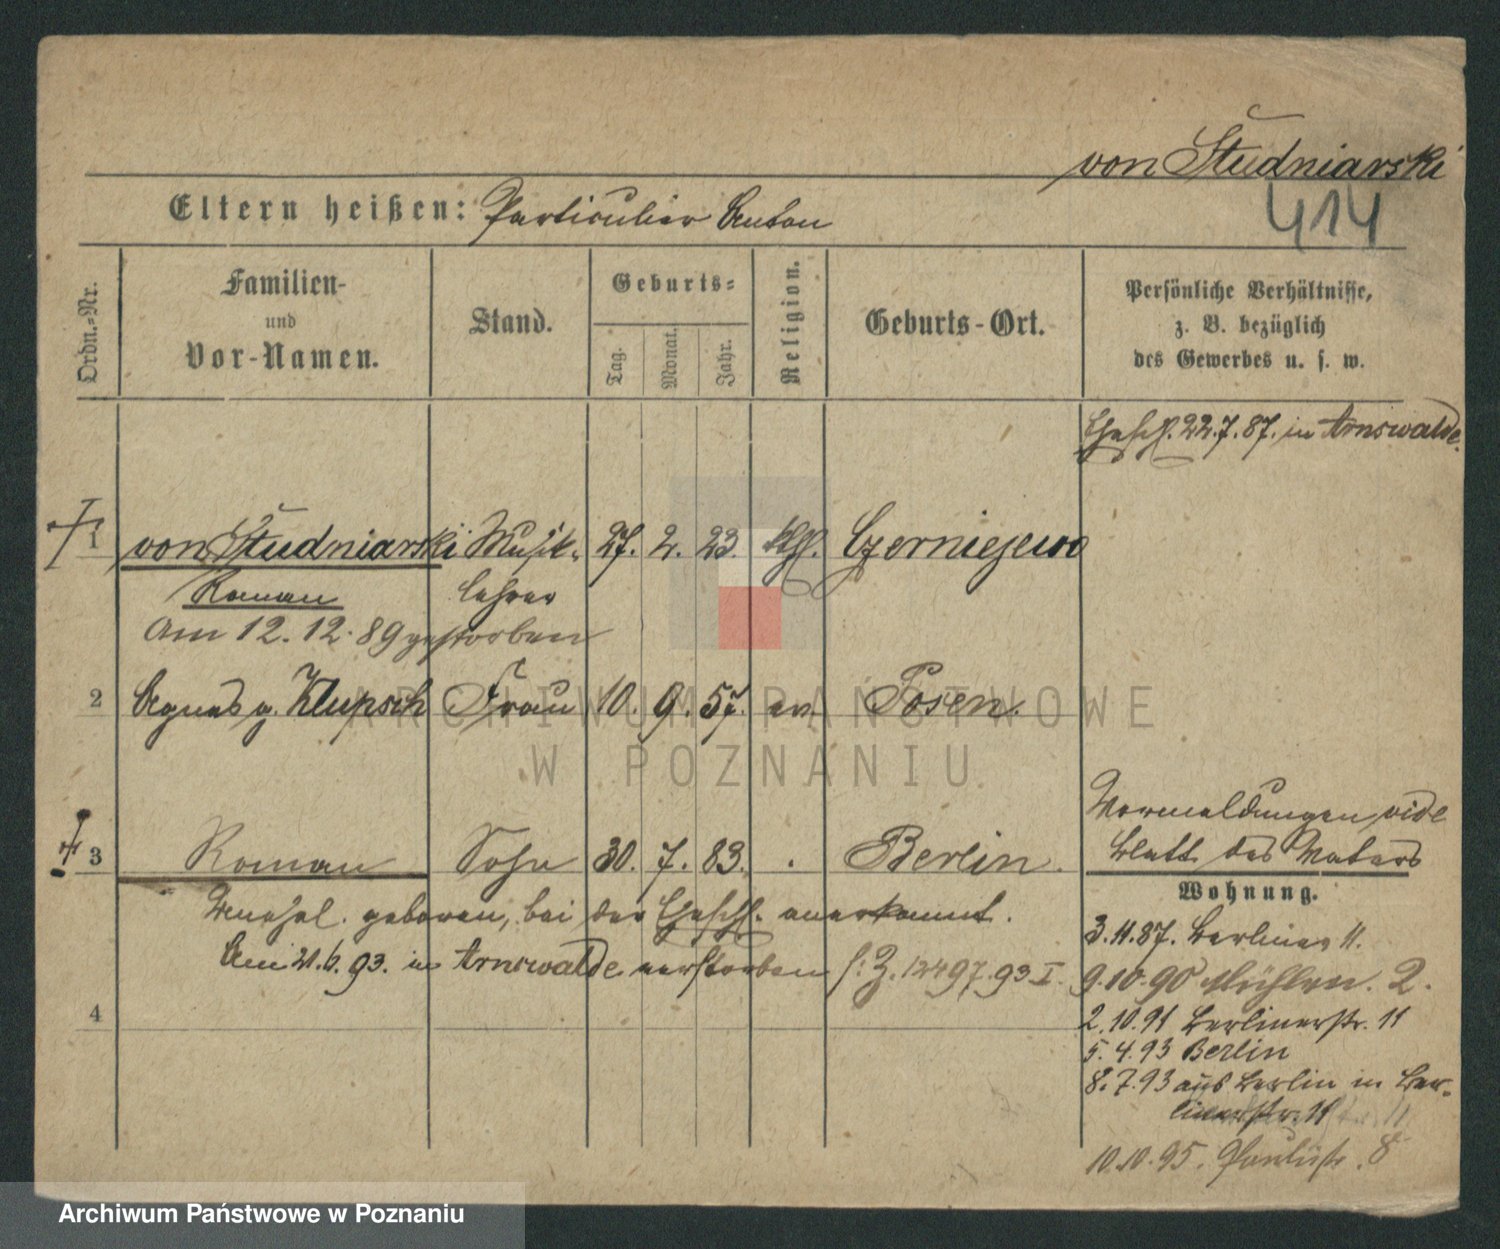 von Studniarski
414
Eltern heißen: Particulier Anton
Ordn.-Nr.
Familien-
und
Vor-Namen.
Stand.
Geburts-
Tag.
Monat.
Jahr.
Religion.
Geburts-Ort.
Persönliche Verhältnisse,
z. B. bezüglich
des Gewerbes u. s. w.
Ehschl. 22.7.87. in Arnswalde.
1 von Studniarski Musik- 27. 2. 23 kth. Czerniejewo
Roman lehrer
Am 12.12.89 gestorben
2 Agnes g. Klupsch Frau 10. 9. 57. ev. Posen.
Vermeldungen vide
Blatt des Vaters
3 Roman Sohn 30. 7. 83. Berlin.
Wohnung.
Unehel. geboren, bei der Ehschl. anerkannt.
3.11.87. Berliner 11.
Am 21.6.93. in Arnswalde verstorben s: Z. 12497.93 I.
9.10.90 Mühlen. 2.
4
2.10.91 Berlinerstr. 11
5.4.93 Berlin
8.7.93 aus Berlin in Ber-
linerstr. 11
10.10.95. Paulistr. 8
ARCHIWUM PAŃSTWOWE
W POZNANIU
Archiwum Państwowe w Poznaniu